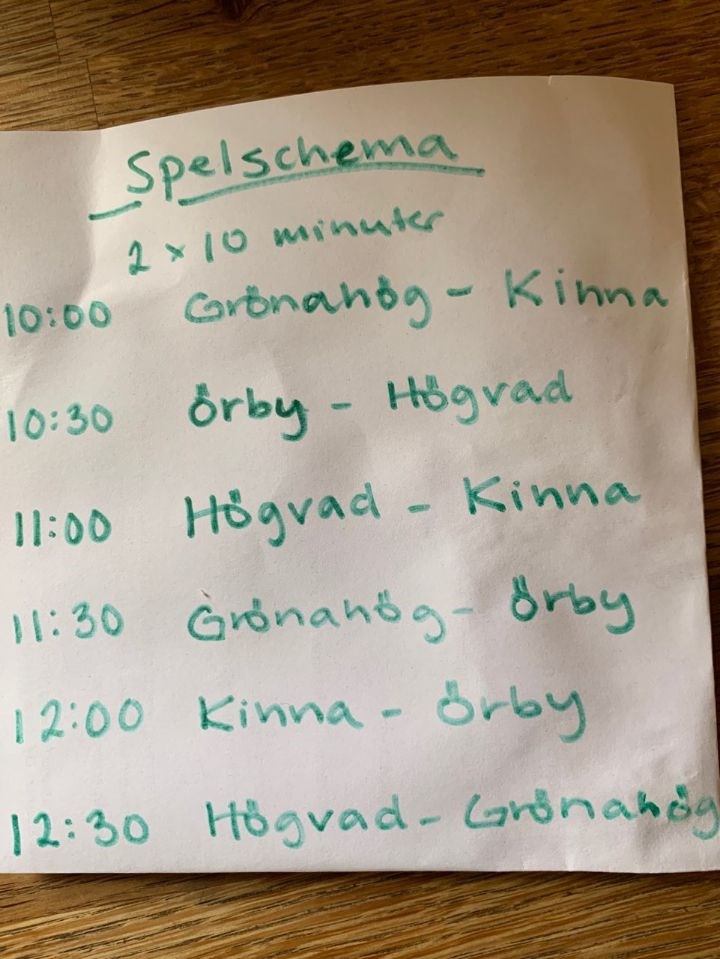 Spelschema
2 x 10 minuter
10:00 Grönahög - Kinna
10:30 Örby - Högvad
11:00 Högvad - Kinna
11:30 Grönahög - Örby
12:00 Kinna - Örby
12:30 Högvad - Grönahög